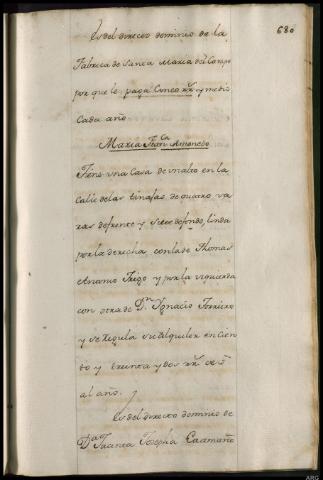 680
Es del directo dominio de la
Fabrica de Santa Maria del Campo
por que le paga Cinco rr.s y medio
Cada año
Maria Fran.ca Amenedo
Tiene una Casa de vn alto en la
Calle de las tinajas, de quatro va
ras de frente y siete de fondo, linda
por la derecha, con la de Thomas
Antonio Trigo y por la izquierda
con otra de D.n Ygnacio Ferreiro
y se Regula su alquiler en Cien
to y treinta y dos rr.s de v.on
al año.
Es del directo dominio de
D.a Juana Josepha Caamaño
ARG